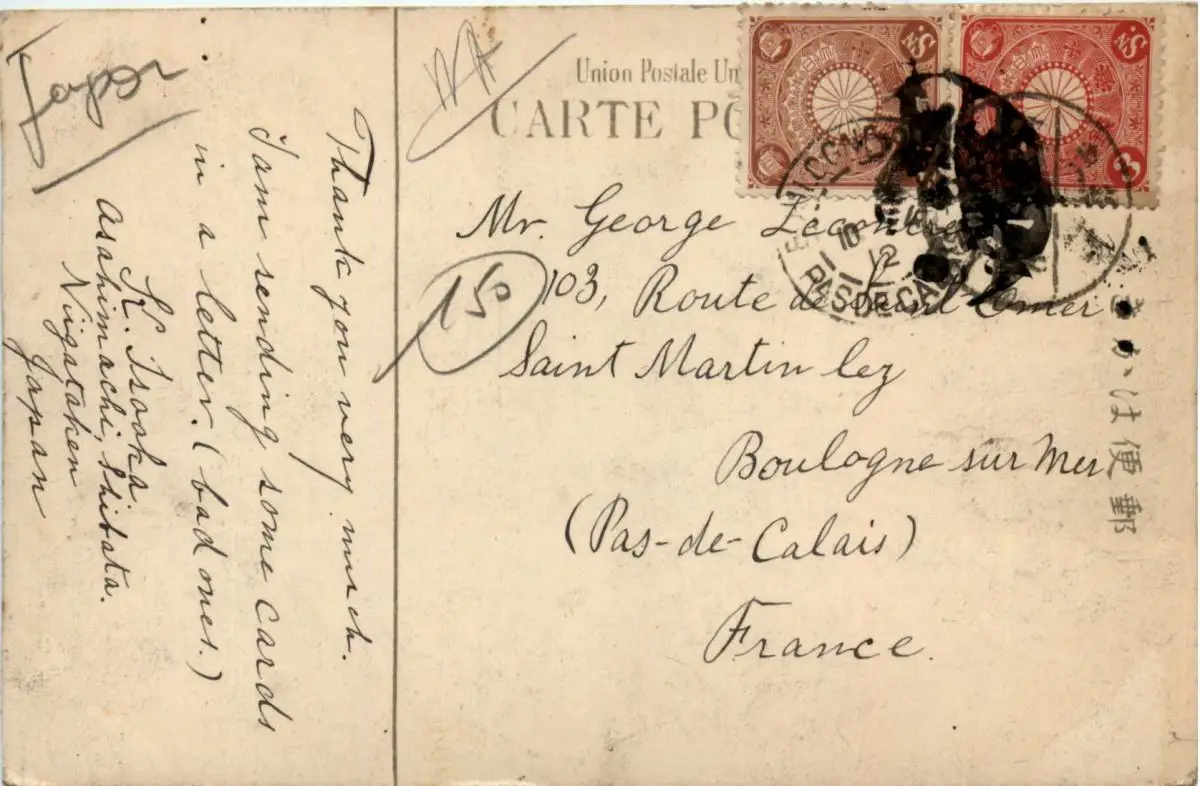 Japon
Thank you very much.
I am sending some cards
in a letter. (bad ones.)
K. Isooka
Asahimachi, Shibata.
Niigataken
Japan
Union Postale Un
CARTE PO
Mr. George
103, Route de Saint Omer
Saint Martin lez
Boulogne sur Mer
(Pas-de-Calais)
France.
150
10
12
PAS-DE-CA
Sn.
Sn.
郵便はかき